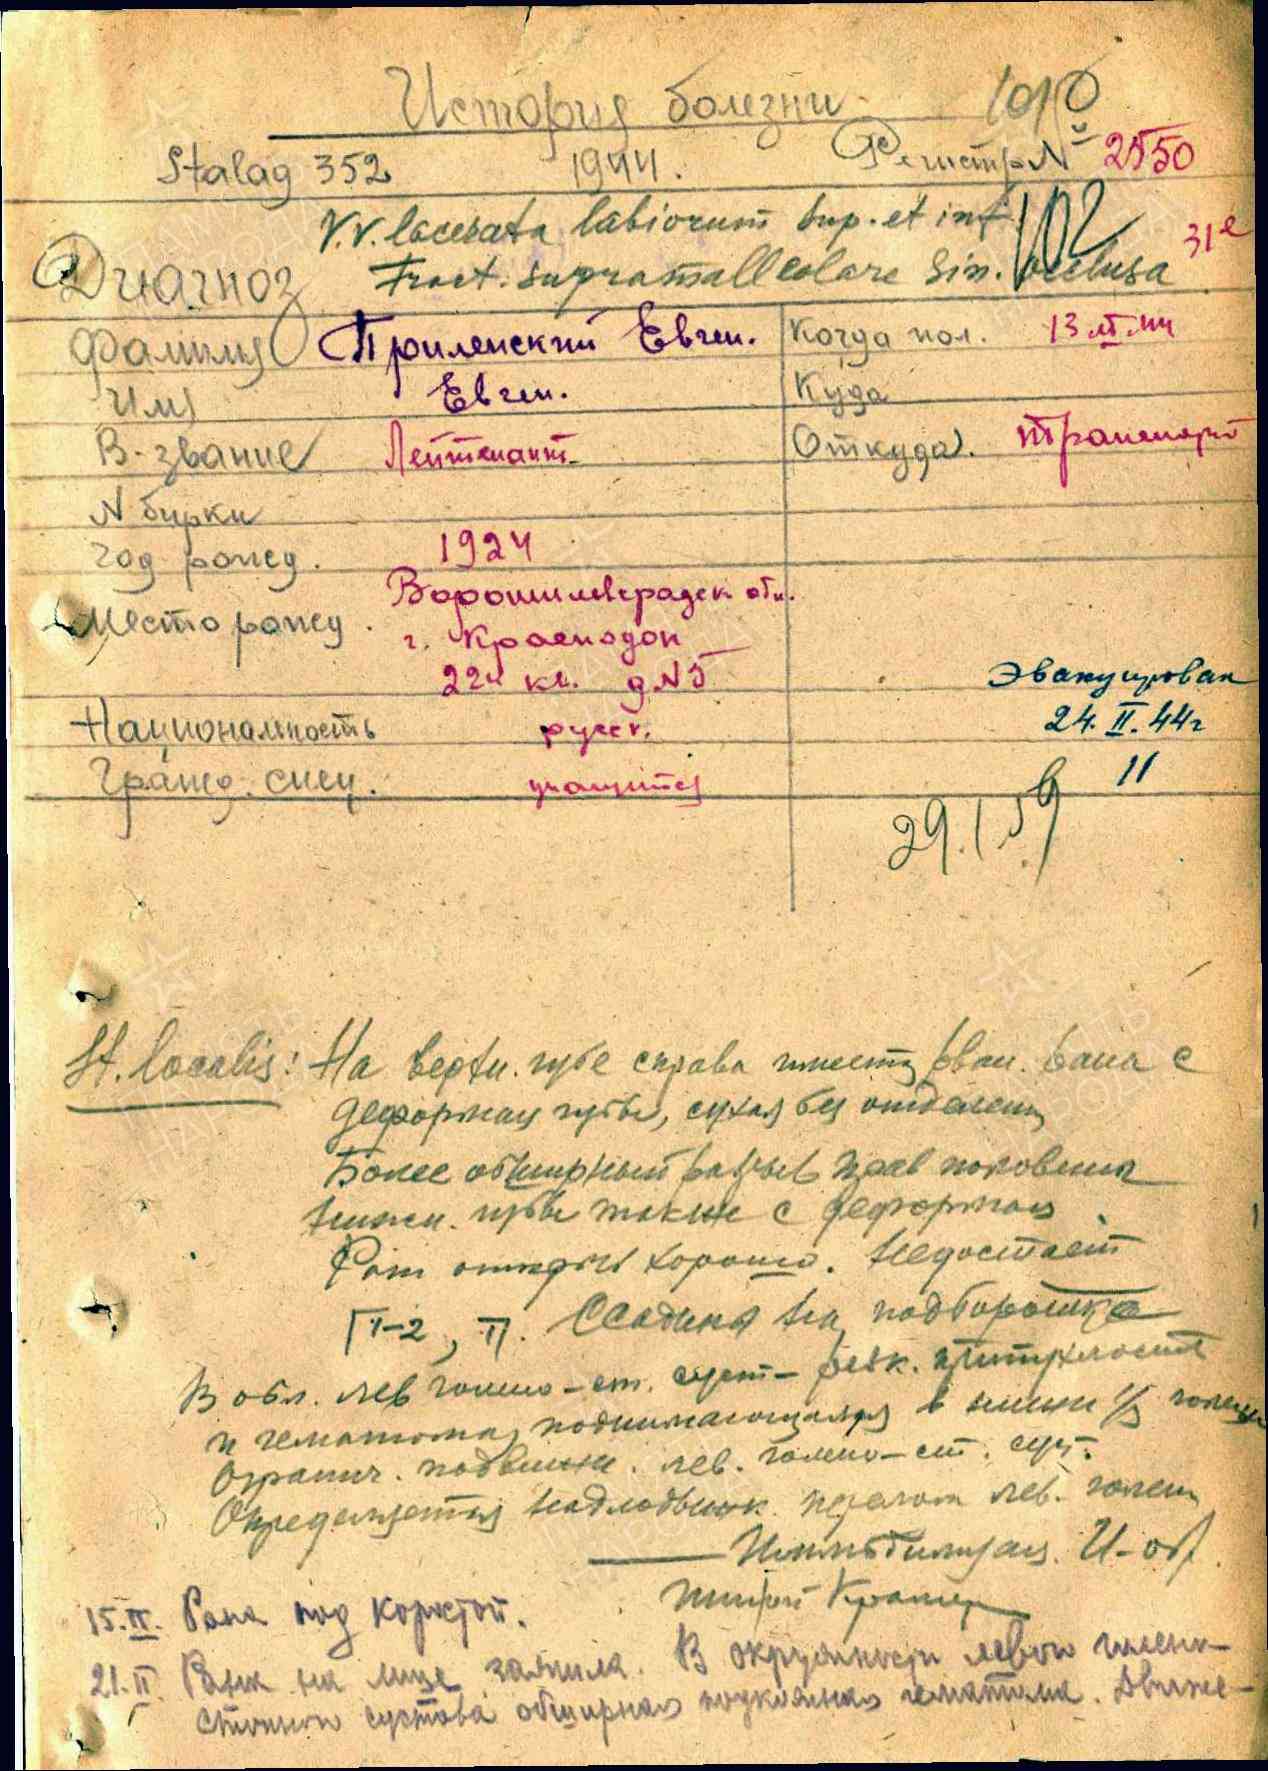 История болезни
Stalag 352 1944. Регистр № 2550
V.V. lacerata labiorum sup. et inf. 102 31е
Диагноз Fract. supramalleolare sin. occlusa
Фамилия Приленский Евген. Когда пол. 13.II.44
Имя Евген. Куда
В-звание Лейтенант. Откуда. транспорт
N бирки
Год рожд. 1924
Место рожд. Ворошиловградск обл.
г. Краснодон
224 кв. д N 5
Эвакуирован
24.II.44г
Национальность русск.
11
Гражд. спец. учащийся
29.I.59
St. localis: На верхн. губе справа имеетс рван. рана с
деформац губы, сухая без отделен
Более обширный разрыв прав половины
нижн. губы также с деформац
Рот открыт хорошо. Недостает
Ссадина на подбородке
В обл. лев голено-ст. суст- резк. припухлость
и гематома, поднимающаяся в нижн 1/3 голени
Огранич. подвижн. лев. голено-ст. суст.
Определяется надлодыжк. перелом лев. голен
Иммобилизац. И-обр.
шиной Крамер
15.II. Рана под коркой.
21.II. Рана на лице зажила. В окружности левого голено-
стопного сустава обширная подкожная гематома. Движе-